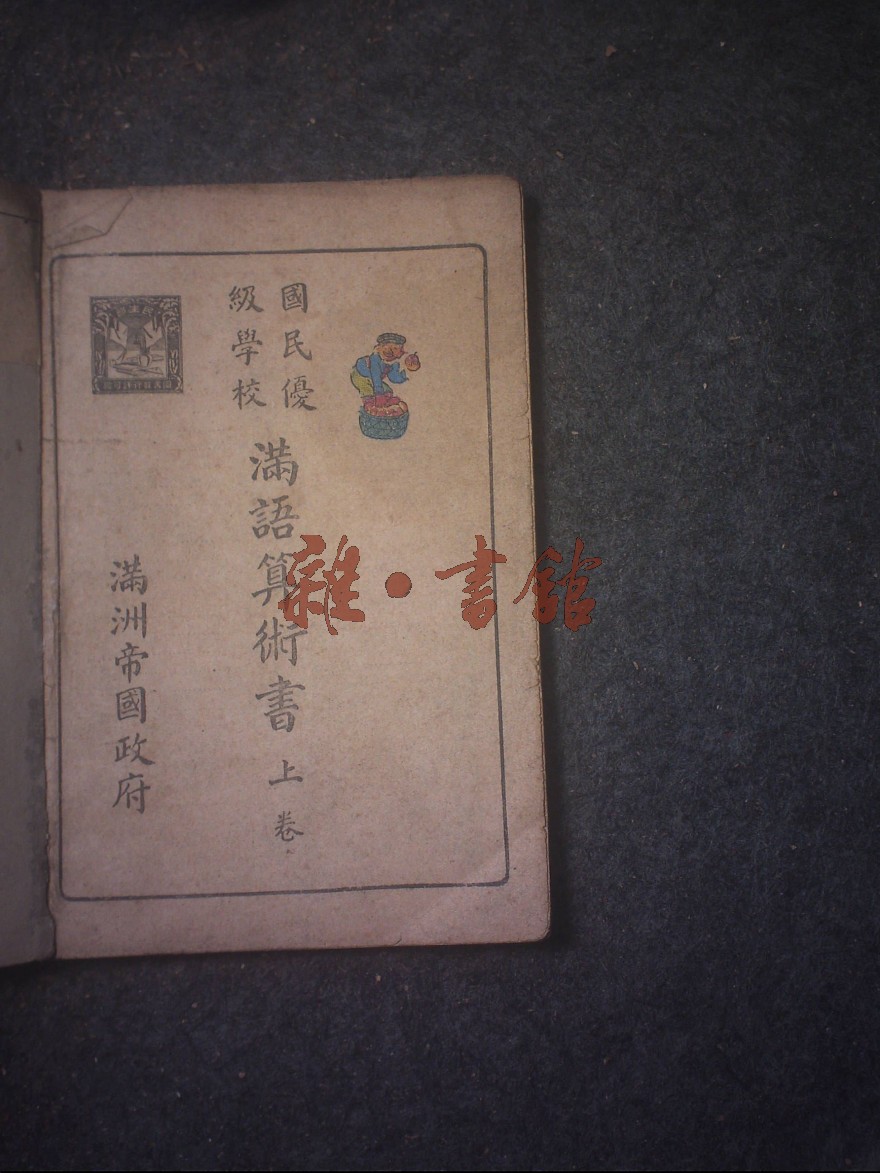 國民優
級學校
滿語算術書 上卷
滿洲帝國政府
雜·書館